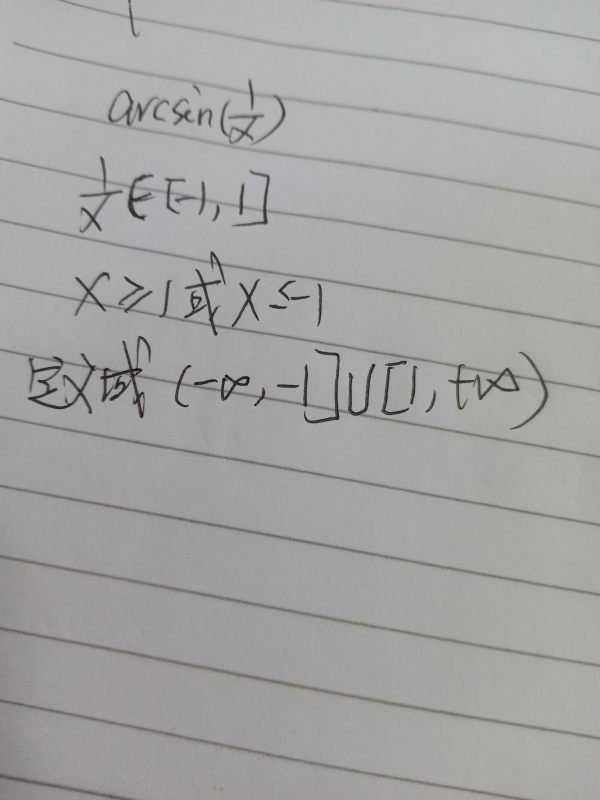 arcsin(1/x)
1/x ∈ [-1, 1]
x ≥ 1 或 x ≤ -1
定义域 (-∞, -1] ∪ [1, +∞)